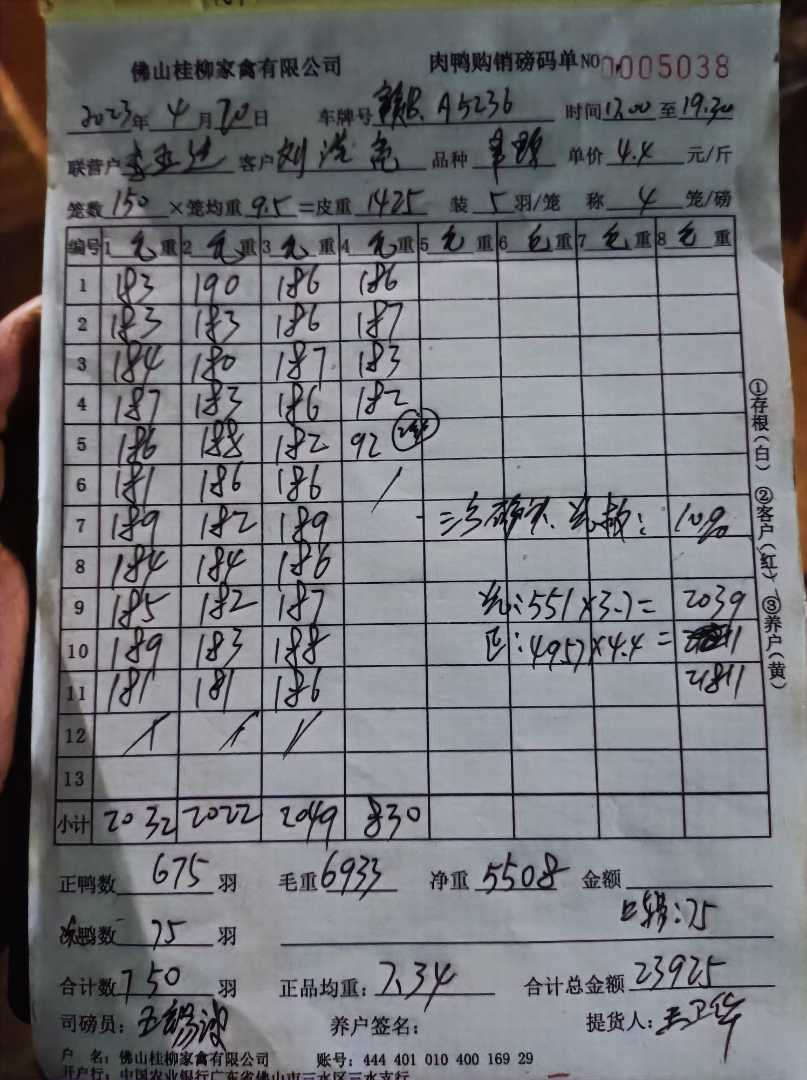 佛山桂柳家禽有限公司 肉鸭购销磅码单 NO 0005038
2023年 4 月 20 日 车牌号 A5236 时间 17.00 至 19.30
联营户 客户 刘 品种 单价 4.4 元/斤
笼数 150 ×笼均重 9.5 =皮重 1425 装 5 羽/笼 称 4 笼/磅
编号 1 毛 重 2 毛 重 3 毛 重 4 毛 重 5 毛 重 6 毛 重 7 毛 重 8 毛 重
1 183 190 186 186
2 183 183 186 187
3 184 180 187 183
4 187 183 186 182
5 186 188 182 92
6 181 186 186
7 189 182 189 10%
8 184 184 186
9 185 182 187 :551×3.7= 2039
10 189 183 188 正:4957×4.4=
11 181 181 186 21811
12
13
小计 2032 2022 2049 830
正鸭数 675 羽 毛重 6933 净重 5508 金额
:75
次鸭数 75 羽
合计数 750 羽 正品均重: 7.34 合计总金额 23925
司磅员: 养户签名: 提货人: 王卫华
户 名: 佛山桂柳家禽有限公司 账号: 444 401 010 400 169 29
开户行: 中国农业银行广东省佛山市三水区三水支行
①存根(白) ②客户(红) ③养户(黄)